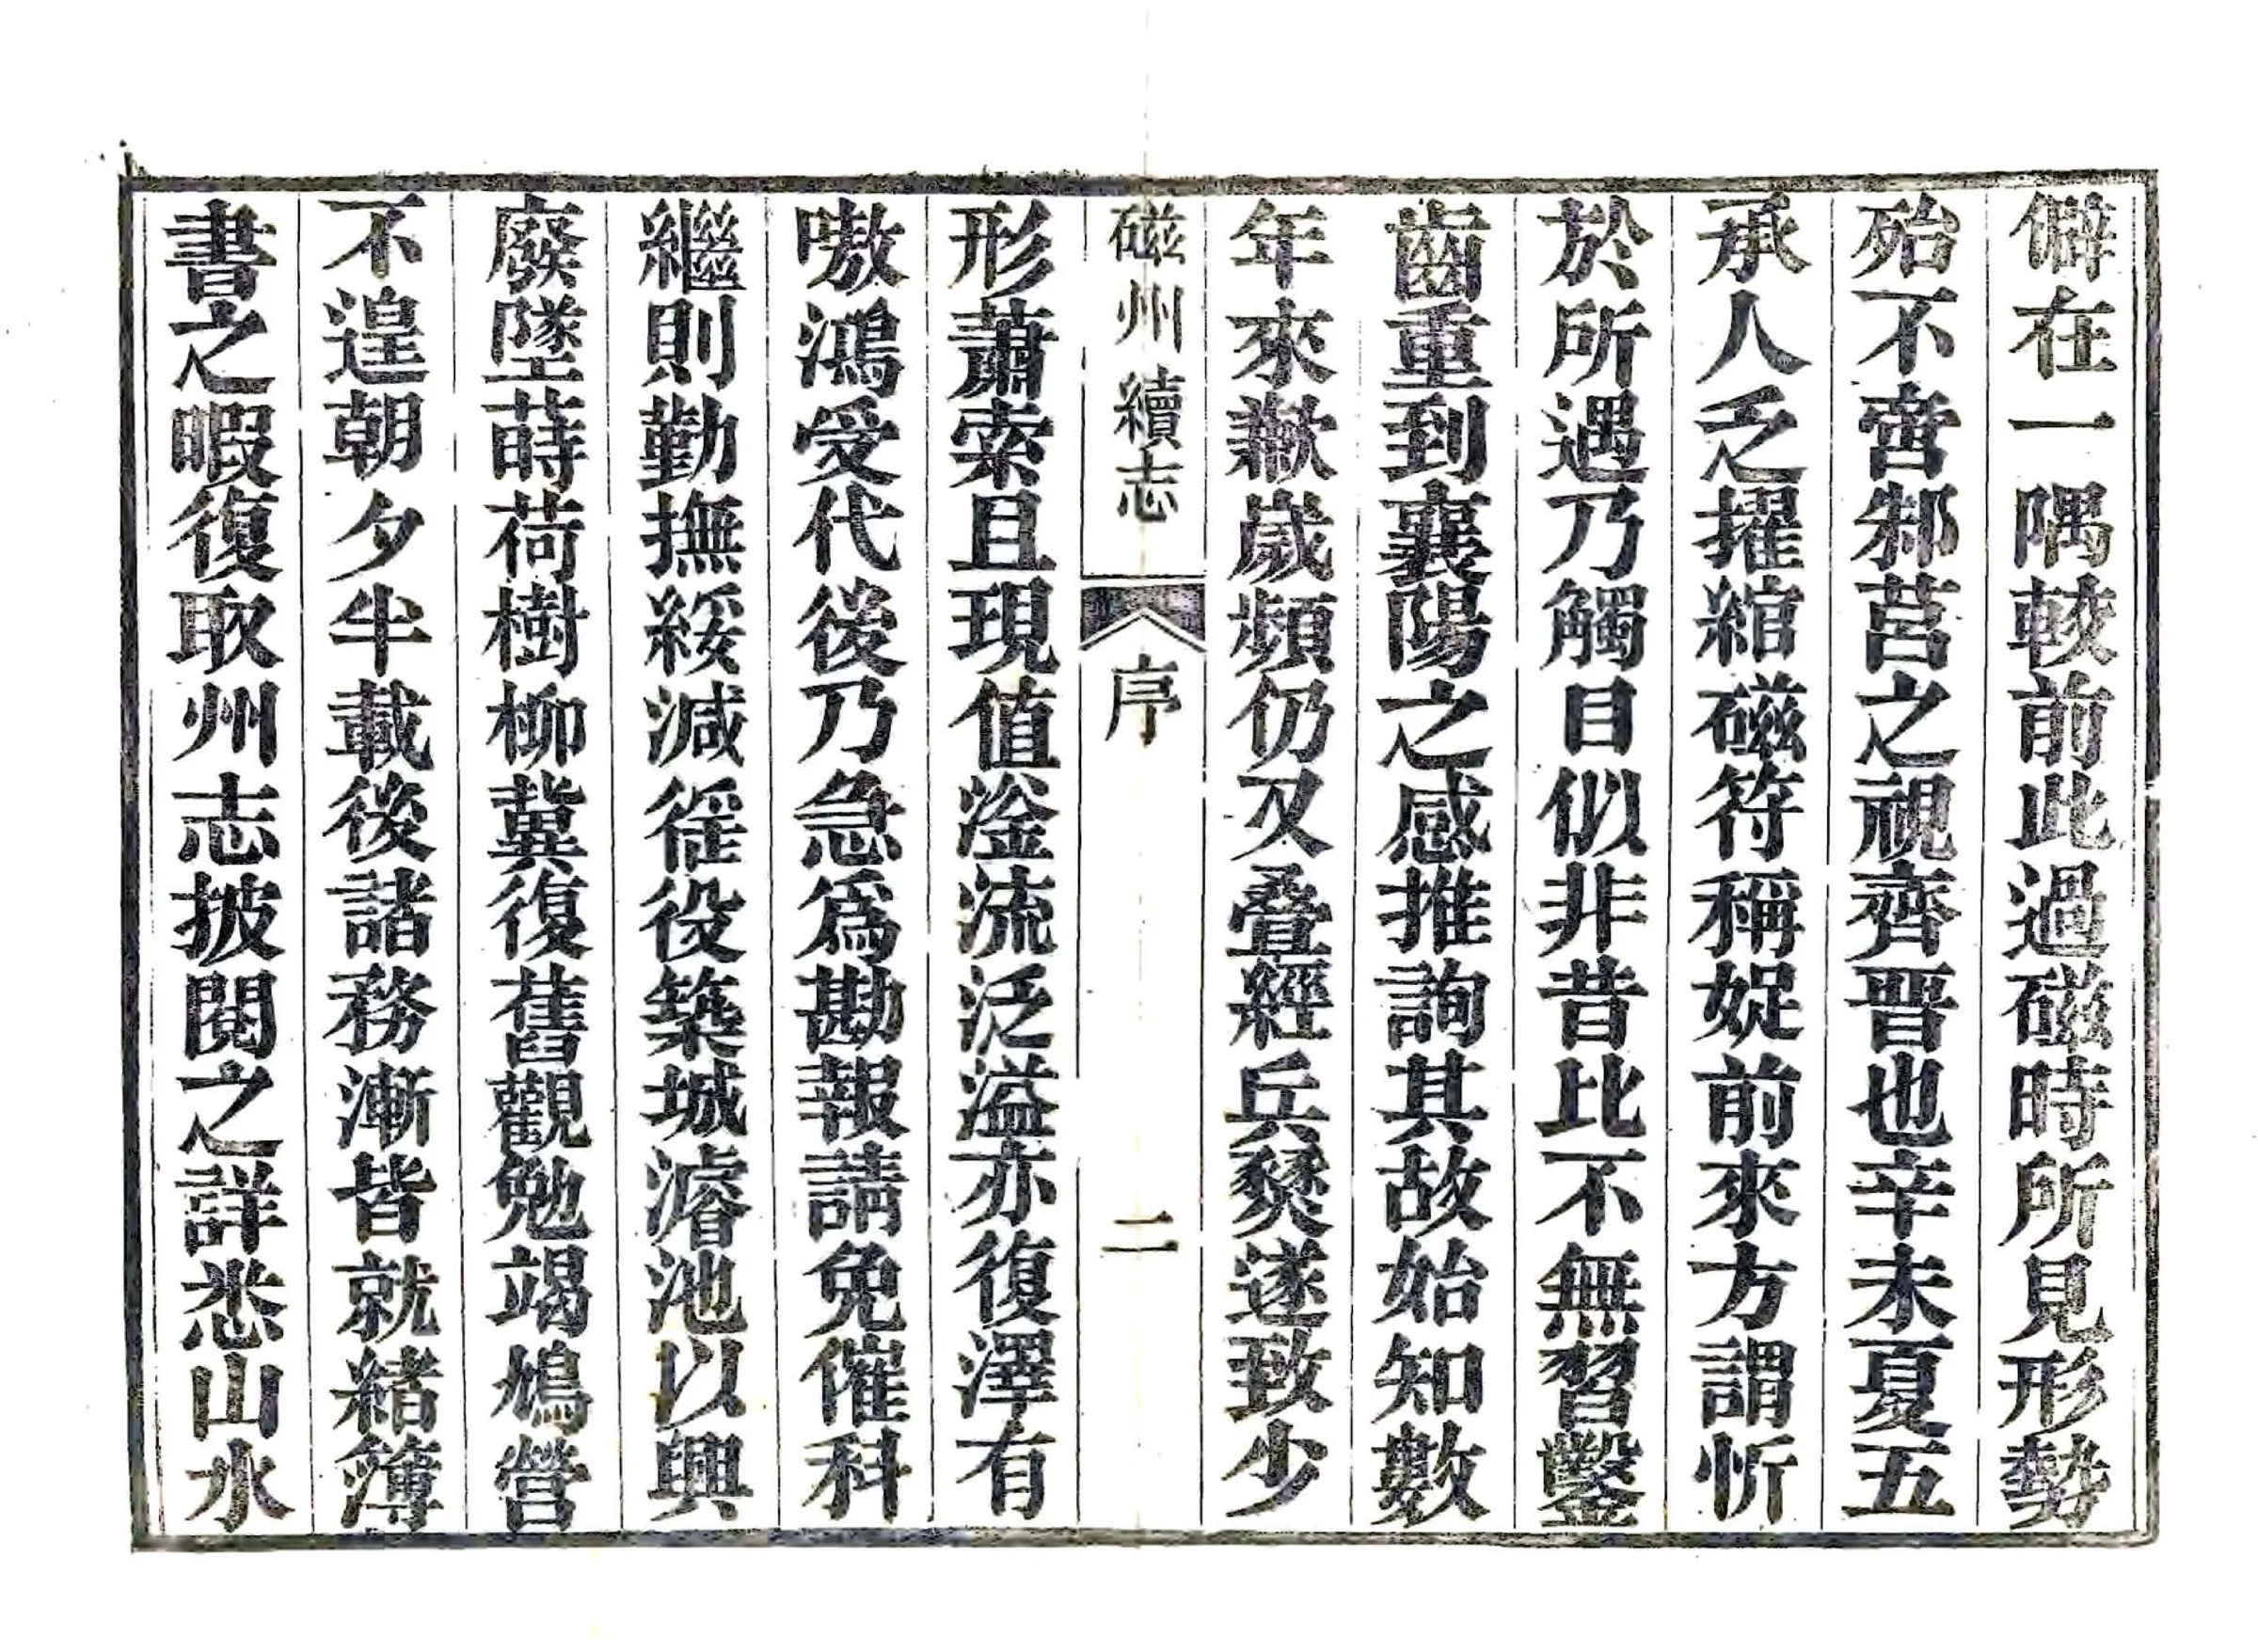 僻在一隅較前此過磁時所見形勢
殆不啻邾莒之視齊晋也辛未夏五
承人乏擢綰磁符稱娖前來方謂忻
於所遇乃觸目似非昔比不無習鑿
齒重到襄陽之感推詢其故始知數
年來歉歲頻仍又叠經兵燹遂致少
磁州續志
序
二
形蕭索且現值滏流泛溢亦復澤有
嗷鴻受代後乃急爲勘報請免催科
繼則勤撫綏減徭役築城濬池以興
廢墜蒔荷樹柳冀復舊觀勉竭鳩營
不遑朝夕半載後諸務漸皆就緒簿
書之暇復取州志披閱之詳悉山水